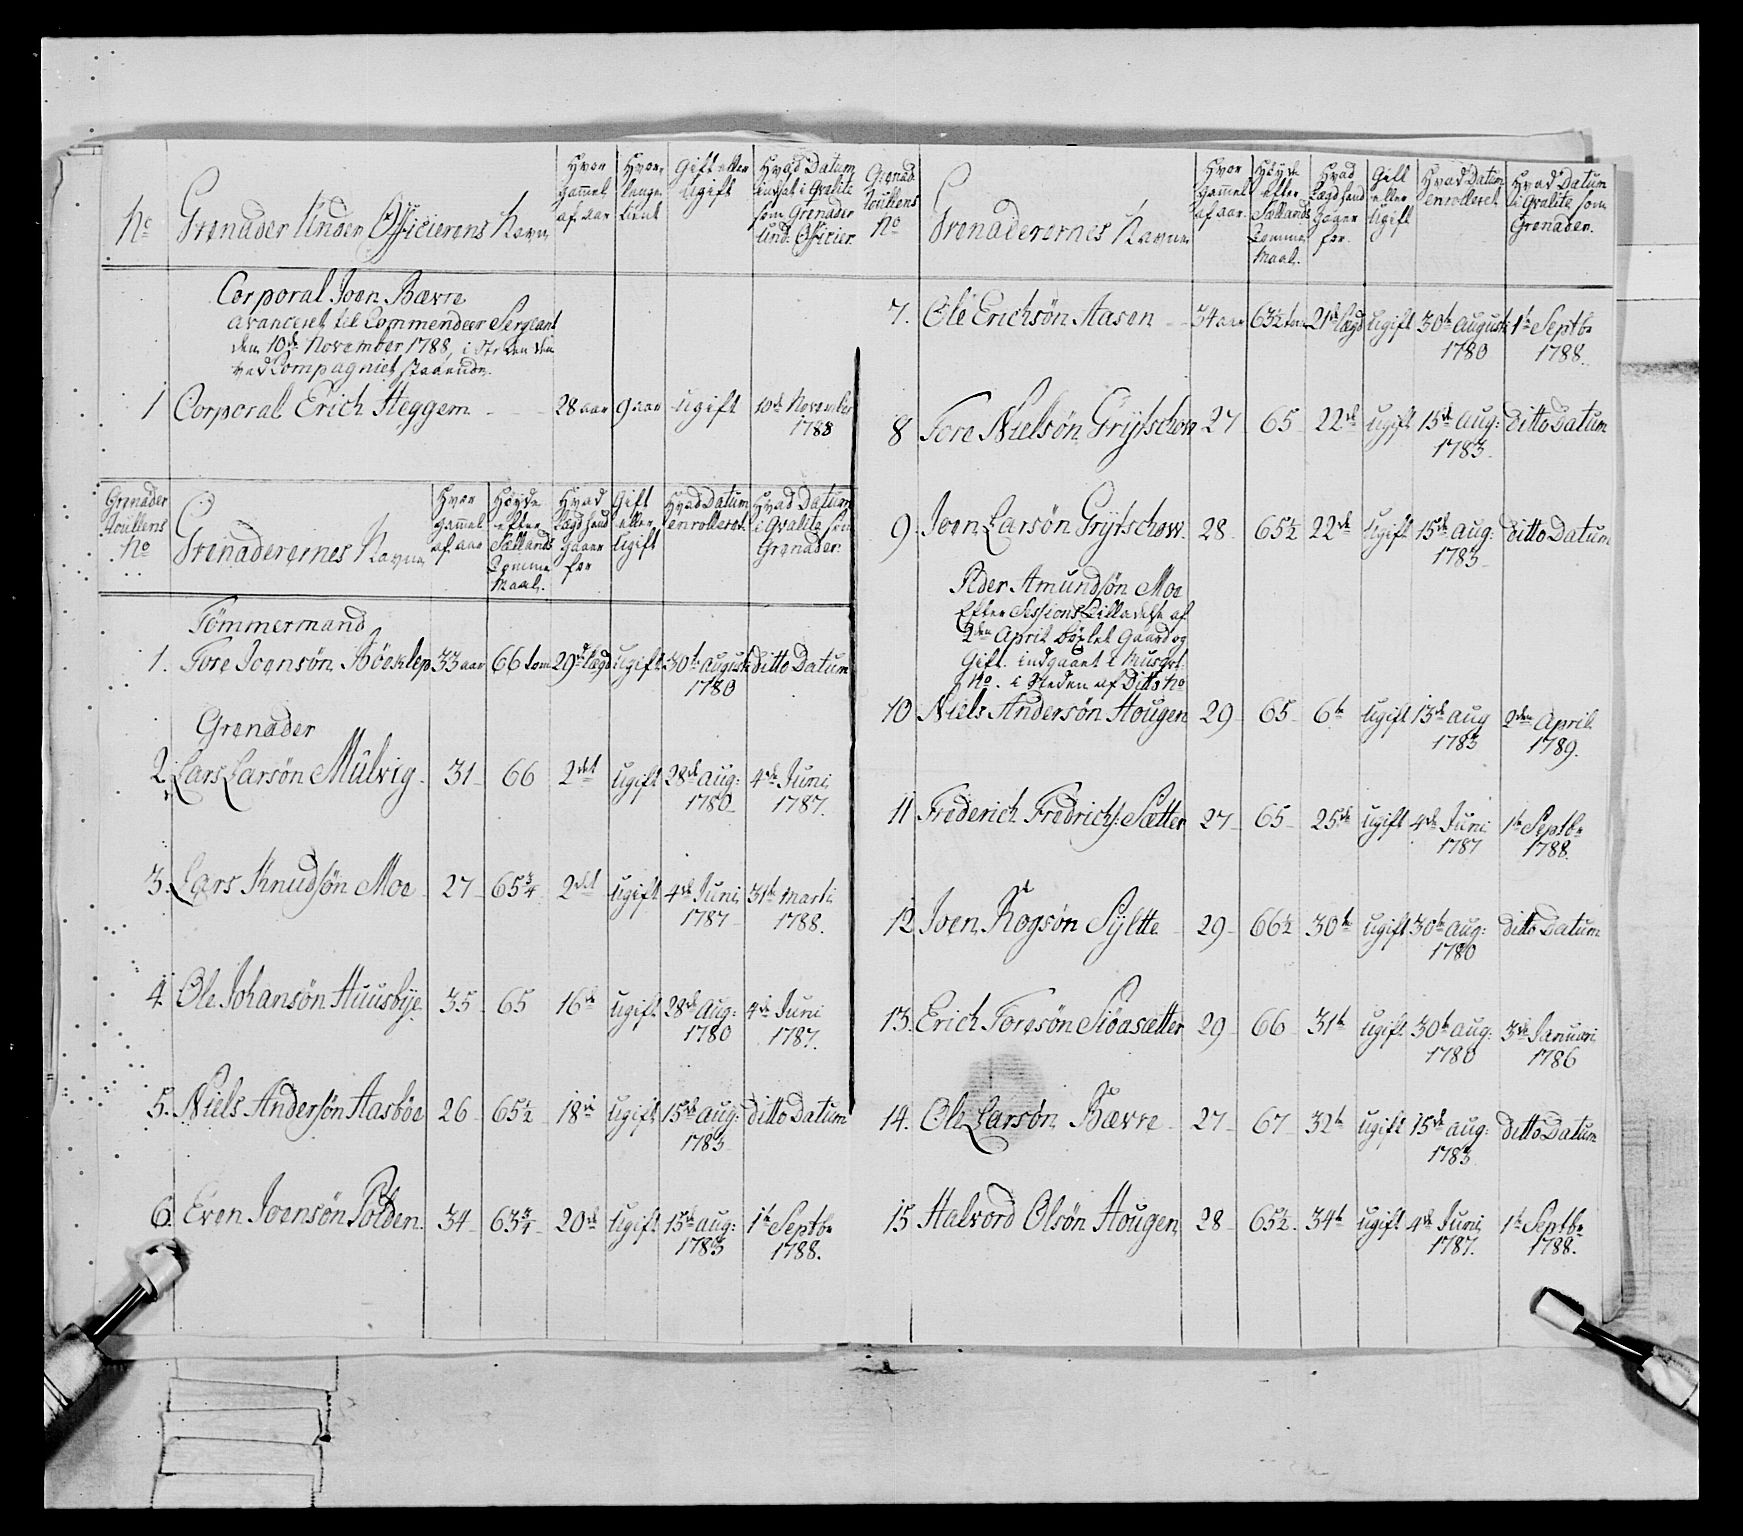 No Grenader Under Officierens Navn | Hvor gammel af aar | Hvor længe tient | Gift eller ugift | Hvad Datum indsat i Qvalite som Grenader Und: Officier
Corporal Joen Bævre
avanceret til Commendeer Sergeant
den 10de November 1788, i Steden den
ved Compagniet staaende.
1 Corporal Erich Heggem 28 aar 9 aar ugift 10de November
1788
Grenader Roullens No | Grenaderernes Navne | Hvor gammel af aar | Höyde efter Sællands Tomme Maal. | Hvad Lægd hand gaaer for | Gift eller Ugift | Hvad Datum enrolleret | Hvad Datum i Qvalite som Grenader.
Tömmermand
1. Tore Joensön 33 aar 66 tom 29de lægd ugift 30te august ditto Datum
1780
Grenader
2. Lars Larsön Mülvig 31 66 2det ugift 28de aug: 4de Juni
1780 1787.
3. Lars Knudsön Moe 27 65¾ 2det ugift 4de Juni 31te Marti
1787 1788.
4 Ole Johansön Huusbye 35 65 16de ugift 28de aug: 4de Juni
1780 1787.
5. Niels Andersön Aasböe 26 65½ 18de ugift 15de aug: ditto Datum
1783
6. Even Joensön Polden 34 63¾ 20de ugift 15de aug: 1te Septbr
1783 1788.
Grenad. Roullens No | Grenaderernes Navne | Hvor gammel af aar. | Höyde efter Sællands Tomme Maal. | Hvad Lægd hand gaaer for. | Gift eller Ugift | Hvad Datum enrolleret | Hvad Datum i Qvalite som Grenader.
7. Ole Erichsön Aasen 34 aar 63½ tom 21de lægd Ugift 30te august 1te Septbr
1780 1788.
8 Tore Nielsön Grytschow 27 65 22de ugift 15de aug: ditto Datum
1783
9. Joen Larsön Grytschow. 28 65½ 22de ugift 15de aug: ditto Datum
1783
Peder Amundsön Moe
Efter Sessions Tilladelse af
2den April böxlet Gaard og
Gift. indgaaet i Musqvt:
No. i Steden af Ditto No
10 Niels Andersön Hougen 29 65 6te ugift 15de aug 2den April
1783 1789.
11 Frederich Fredrichs: Sætter 27 65 25de ugift 4de Juni 1te Septbr
1787 1788.
12 Joen Rogsön Syltte 29 66½ 30te ugift 30te aug: ditto Datum
1780
13. Erich Toresön Siöasætter 29 66 31te ugift 30te aug: 3de Januari
1780 1786
14. Ole Larsön Bævre 27 67 32te ugift 15de aug: ditto Datum
1783
15 Halvord Olsön Hougen 28 65½ 34te ugift 4de Juni 1te Septbr
1787. 1788.